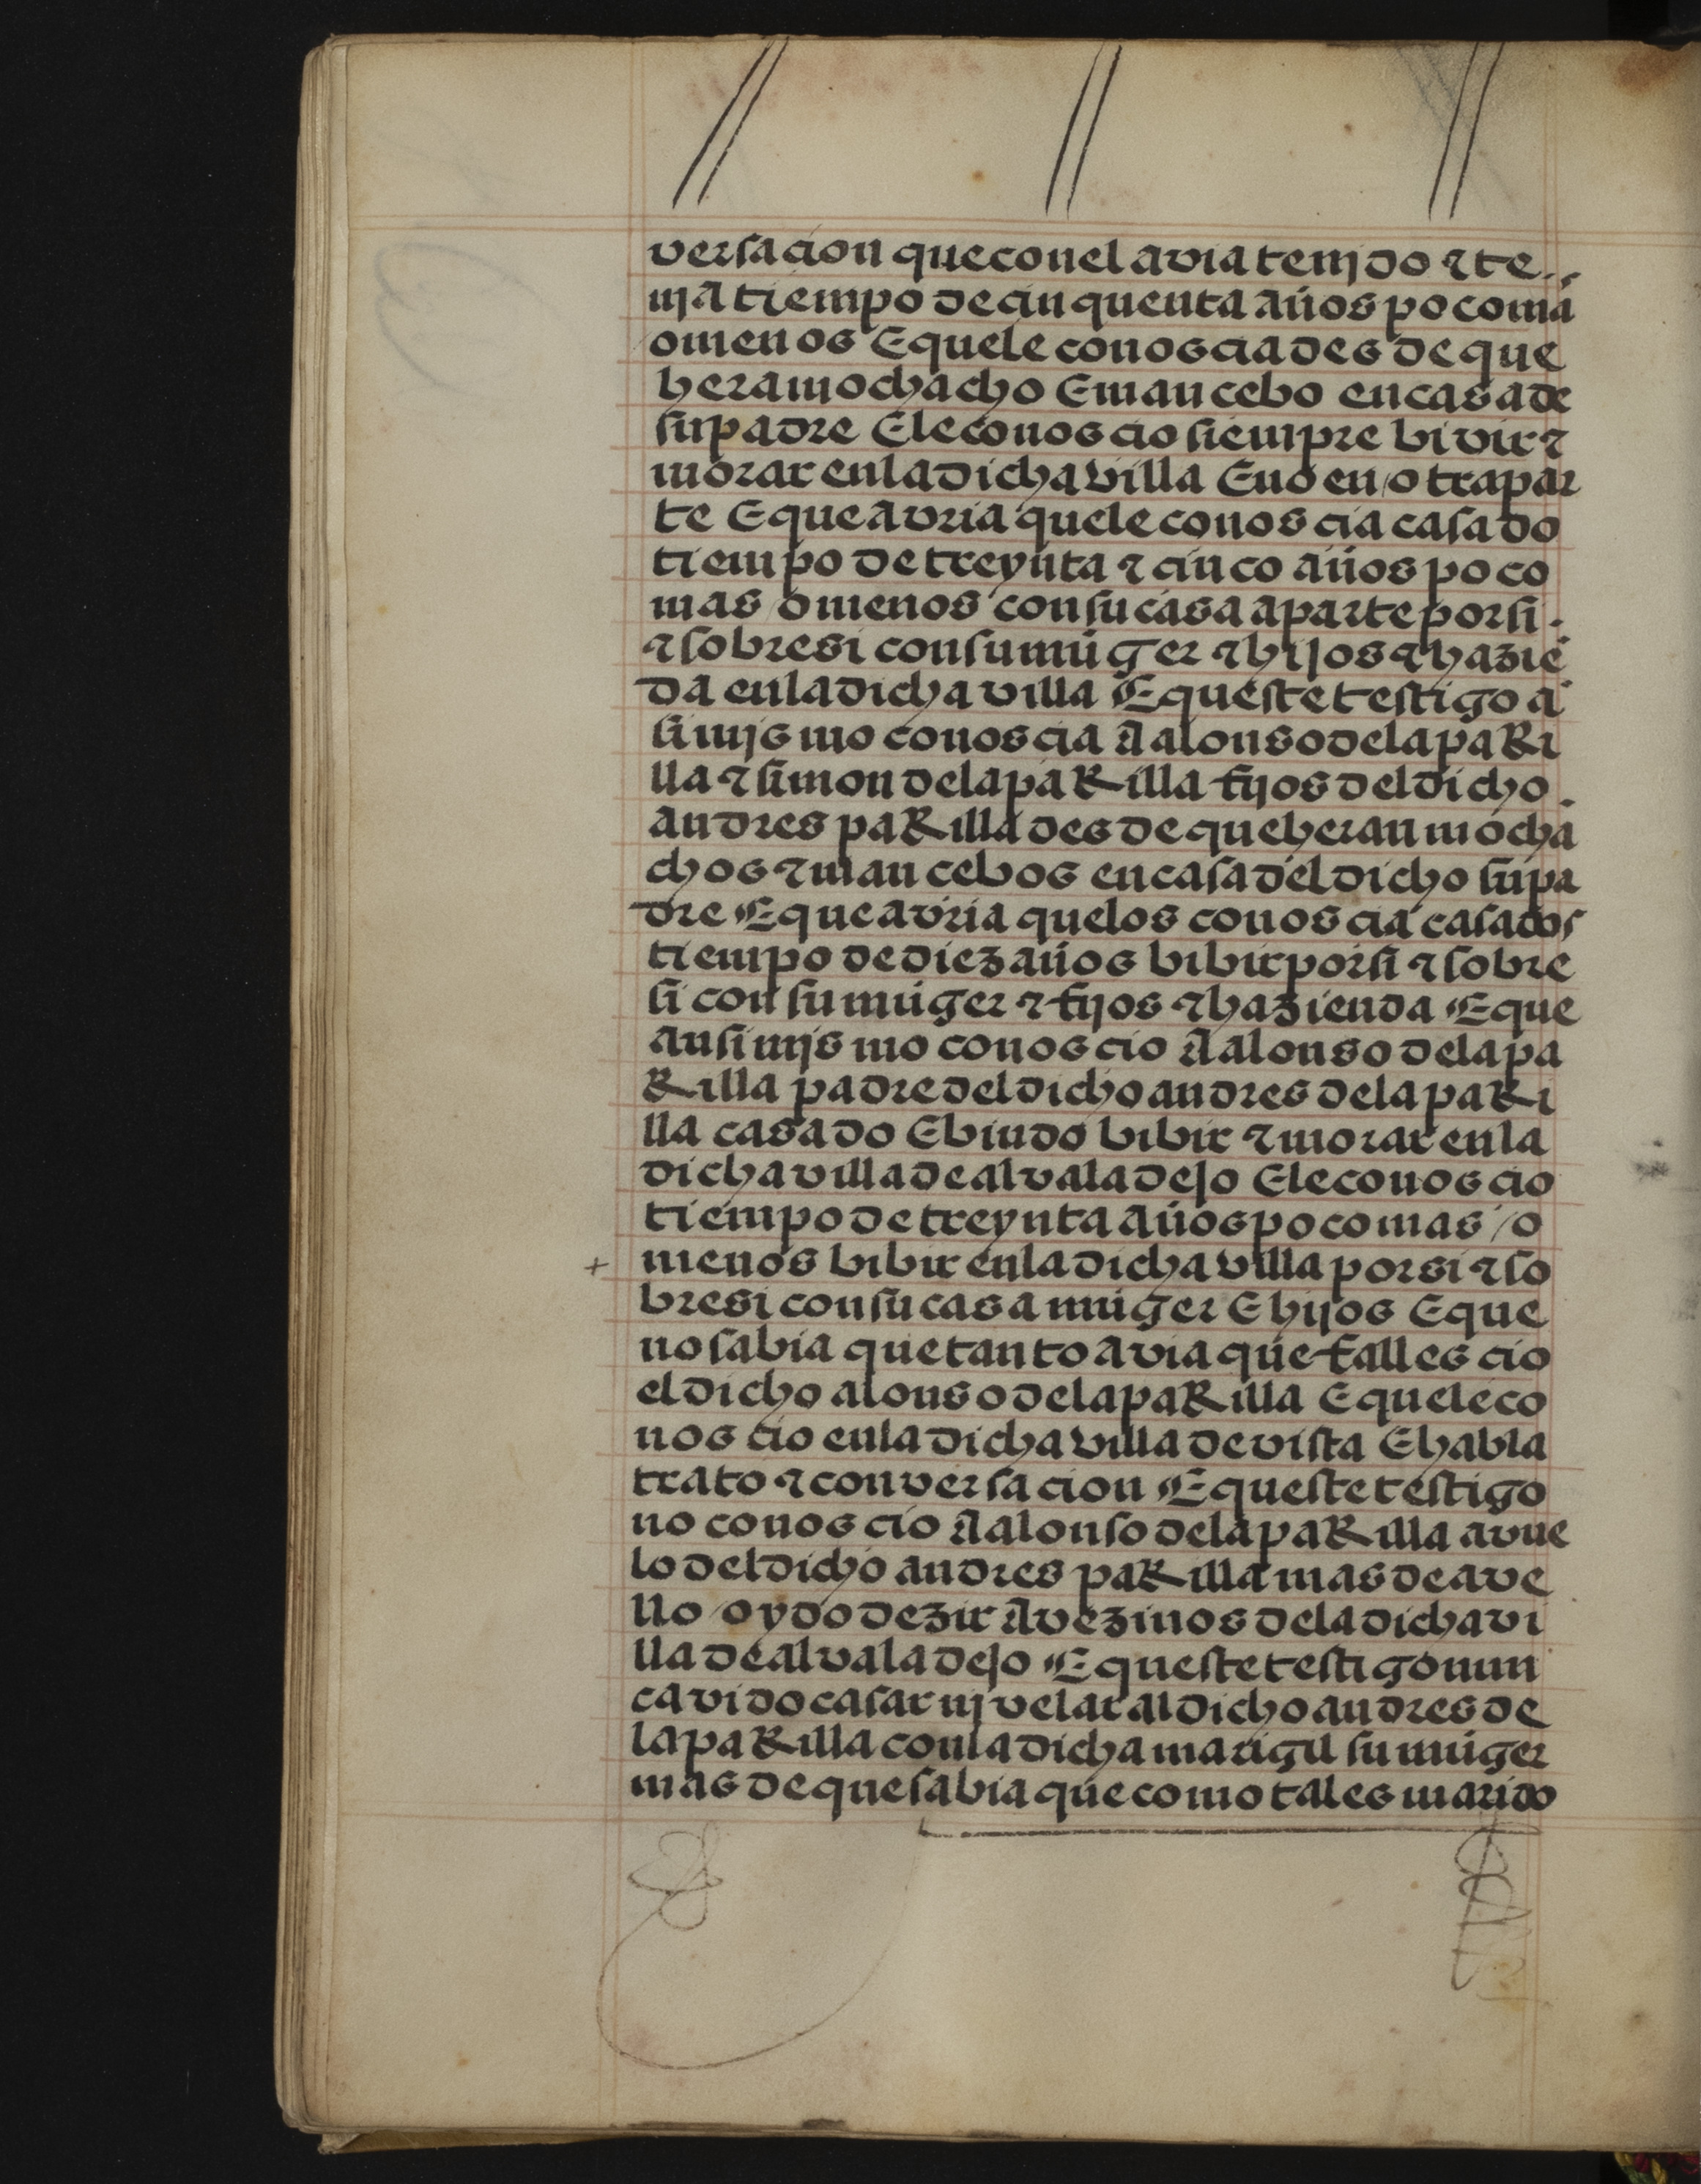 versacion que con el avia tenjdo ⁊ te
nja tiempo de cinquenta años poco mã
o menos E quele conosçia desde que
hera mochacho E mancebo en casa de
su padre E le conosçio siempre bivir ⁊
morar enla dicha villa E no en otra par
te E que avria quele conosçia casado
tiempo de treynta ⁊ cinco años poco
mas o menos con su casa aparte por si
⁊ sobre si con su muger ⁊ hijos ⁊ haziẽ
da enla dicha villa E queste testigo a
si mjsmo conosçia A alonso dela paRi
lla ⁊ simon dela paRilla fijos del dicho
andres paRilla desde que heran mocha
chos ⁊ mancebos en casa del dicho su pa
dre E que avria quelos conosçia casados
tiempo de diez años bibir por si ⁊ sobre
si con su muger ⁊ fijos ⁊ hazienda E que
ansi mjsmo conosçio A alonso dela pa
Rilla padre del dicho andres dela paRi
lla casado E biudo bibir ⁊ morar enla
dicha villa de alvaladejo E le conosçio
tiempo de treynta años poco mas o
+ menos bibir enla dicha villa por si ⁊ so
bre si con su casa muger E hijos E que
no sabia que tanto avia que fallesçio
el dicho alonso dela paRilla E quele co
nosçio enla dicha villa de vista E habla
trato ⁊ conversacion E queste testigo
no conosçio A alonso dela paRilla avue
lo del dicho andres paRilla mas de ave
llo oydo dezir A vezinos dela dicha vi
lla de alvaladejo E queste testigo nun
ca vido casar nj velar al dicho andres de
la paRilla conla dicha mari gil su muger
mas de que sabia que como tales marido